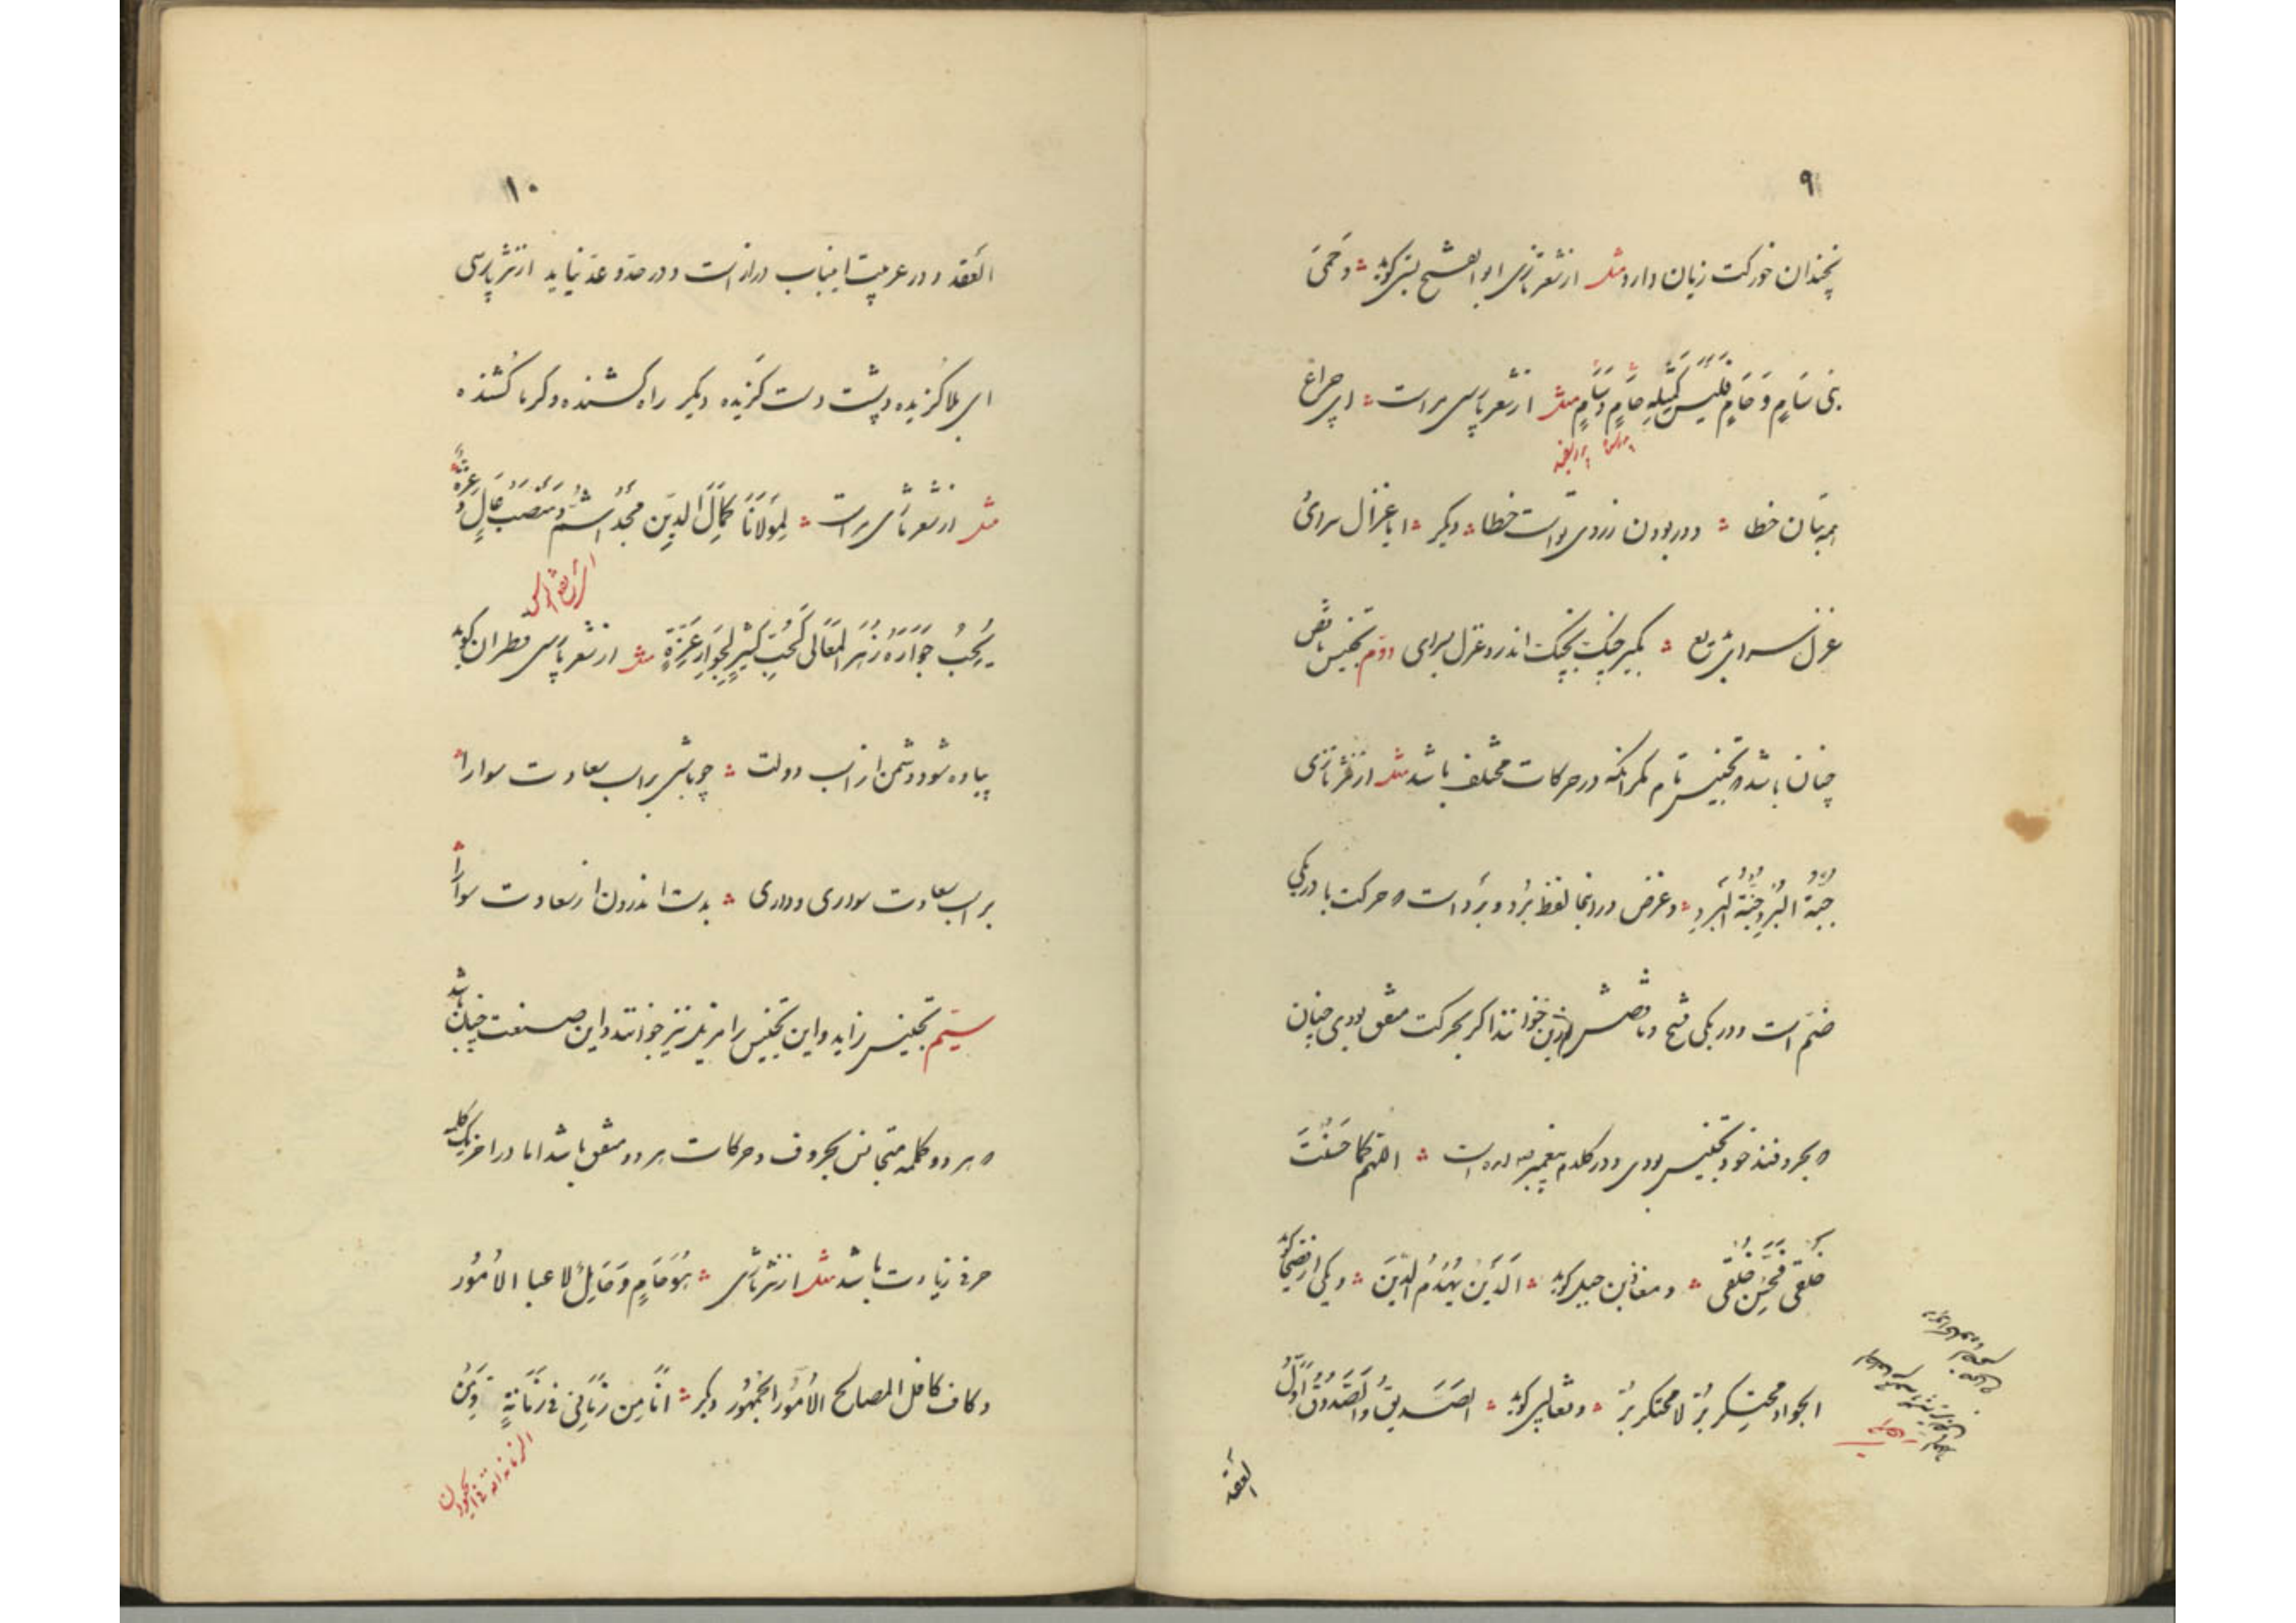 ۹
چندان خورکت زیان دارد مثل از شعر تازی ابو الفتح بستی کوید و حمی
بنی سام و حام فلیس کمثله حام و سام مثل از شعر پارسی مراست ای چراغ
همه بتان خطا دور بودن ز روی تو است خطا دیکر ایا غزال سرای
غزل سرای بدیع بکیر چنک بچنک اندر و غزل بسرای دوم تجنیس ناقص
چنان باشد که تجنیس تام مکر انکه در حرکات مختلف باشد مثل از نثر تازی
جُبّة البُرد جُنّة البَرد و غرض در اینجا لفظ بُرد و بَرد است که حرکت با در یکی
ضمّ است و در یکی فتح و ناقصش ازین خوانند اکر بحرکت متفق بودی چنان
که بحروفند خود تجنیس بودی و در کلام پیغمبر است اللهم کما حسّنت
خَلقی فحسّن خُلقی و معاذ بن جبل کوید الدَّین یهدم الدّین و یکی از فصحا کوید
الجواد محتکر بِرّ لا محتکر بُرّ و ثعالبی کوید الصدیق الصدوق اوّل
العقد
۱۰
العقد و در عربیت این باب دراز است و در حدّ و عدّ نیاید از نثر پارسی
ای بلا کزیده و پشت دست کزیده دیکر راه کشنده و کرما کشنده
مثل از شعر تازی مراست لمولانا کمال الدین مجد اشمّ و منصب عال و عزّه
یحبّ جواره زهر المعالی کحبّ کثیر لجوار عزّة مثل از شعر پارسی قطران کوید
پیاده شود دشمن از اسب دولت چو باشی بر اسب سعادت سوارا
بر اسب سعادت سواری و داری بدست اندرون از سعادت سوارا
سیّم تجنیس زاید و این تجنیس را مزیّل نیز خوانند و این صنعت چنان باشد
که هر دو کلمه متجانس بحروف و حرکات هر دو متفق باشد اما در اخر یک کلمه
حرفی زیادت باشد مثل از نثر تازی هو حام و حامل لاعبا الامور
و کاف کافل المصالح الامور الجمهور دیکر انا من زمانی فی زمانة و من